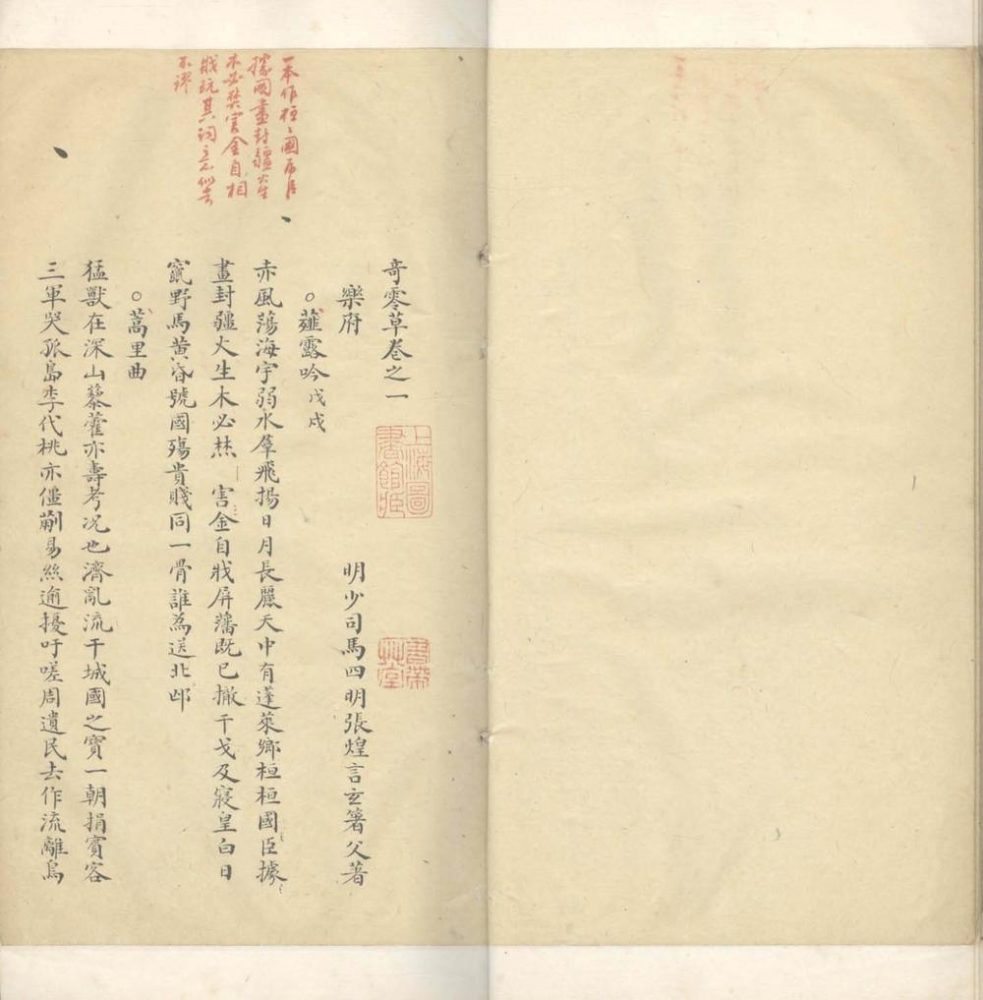 奇零草卷之一
樂府
明少司馬四明張煌言玄箸父著
○薤露吟戊戌
赤風蕩海宇弱水羣飛揚日月長麗天中有蓬萊鄉桓桓國臣據
畫封疆火生木必焚 害金自戕屏藩旣已撤干戈及寢皇白日
竄野馬黃昏號國殤貴賤同一骨誰爲送北邙
○蒿里曲
猛獸在深山藜藿亦壽考况也濟亂流干城國之寶一朝捐賓客
三軍哭孤島李代桃亦僵蒯易絲逾擾吁嗟周遺民去作流離鳥
一本作桓〻國
據國畫封疆火生
木必焚害金自相
戕玩其詞意似
不謬
上海圖
書館臧
書帶
草堂